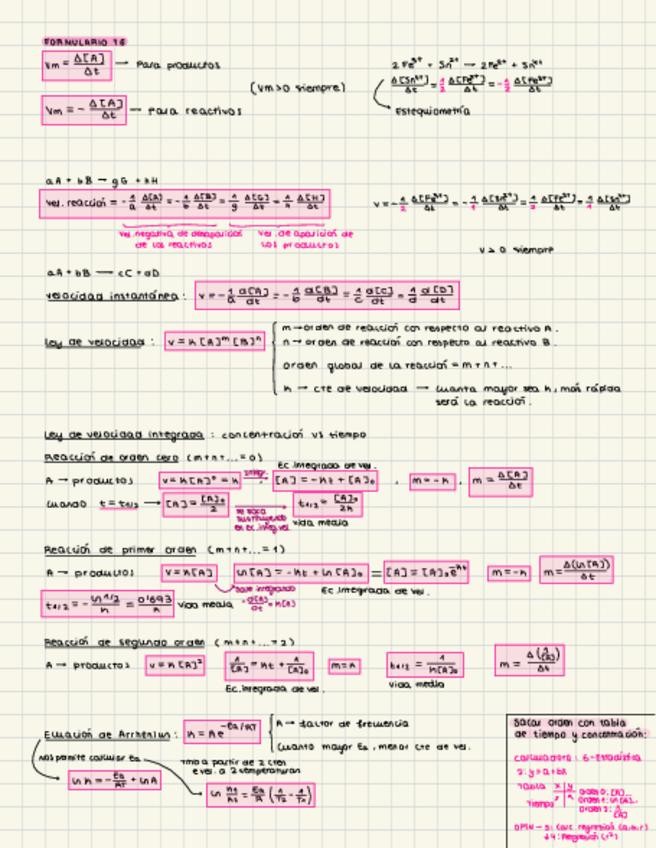 FORMULARIO T6
Vm = Δ[A]/Δt → Para productos
(Vm>0 siempre)
Vm = - Δ[A]/Δt → Para reactivos
2Fe³⁺ + Sn²⁺ → 2Fe²⁺ + Sn⁴⁺
Δ[Sn⁴⁺]/Δt = 1/2 Δ[Fe²⁺]/Δt = -1/2 Δ[Fe³⁺]/Δt
Estequiometría
aA + bB → gG + hH
vel. reacción = -1/a Δ[A]/Δt = -1/b Δ[B]/Δt = 1/g Δ[G]/Δt = 1/h Δ[H]/Δt
vel. negativa de desaparición de los reactivos
vel. de aparición de los productos
v = -1/2 Δ[Fe³⁺]/Δt = -1/1 Δ[Sn²⁺]/Δt = 1/2 Δ[Fe²⁺]/Δt = 1/1 Δ[Sn⁴⁺]/Δt
v > 0 siempre
aA + bB → cC + dD
velocidad instantánea: v = -1/a d[A]/dt = -1/b d[B]/dt = 1/c d[C]/dt = 1/d d[D]/dt
Ley de velocidad: v = k[A]ᵐ[B]ⁿ
m → orden de reacción con respecto al reactivo A.
n → orden de reacción con respecto al reactivo B.
orden global de la reacción = m+n+...
k → cte de velocidad → cuanta mayor sea k, más rápida
será la reacción.
Ley de velocidad integrada: concentración vs tiempo
Reacción de orden cero (m+n+...=0)
Ec. integrada de vel.
A → productos v = k[A]⁰ = k integr. [A] = -kt + [A]₀, m = -k, m = Δ[A]/Δt
cuando t = t1/2 → [A] = [A]₀/2 → t1/2 = [A]₀/2k
se saca sustituyendo en Ec. integ. vel
vida media
Reacción de primer orden (m+n+...=1)
A → productos v = k[A] ln[A] = -kt + ln[A]₀ = [A] = [A]₀e⁻ᵏᵗ m = -k m = Δ(ln[A])/Δt
Sale integrando -d[A]/dt = k[A]
Ec. integrada de vel.
t1/2 = - ln 1/2 / k = 0'693/k vida media
Reacción de segundo orden (m+n+...=2)
A → productos v = k[A]² 1/[A] = kt + 1/[A]₀ m = k t1/2 = 1/k[A]₀ m = Δ(1/[A])/Δt
Ec. integrada de vel.
vida media
Ecuación de Arrhenius: k = A e^(-Ea/RT)
A → factor de frecuencia
Cuanto mayor Ea, menor cte de vel.
nos permite calcular Ea
ln k = -Ea/RT + ln A
a partir de 2 ctes
de vel. a 2 temperaturas
ln k₂/k₁ = Ea/R (1/T₂ - 1/T₁)
Sacar orden con tabla
de tiempo y concentración:
calculadora: 6-Estadística
2: y=a+bx
Tabla x y
Tiempo
Orden 0: [A]...
Orden 1: ln[A]...
Orden 2: 1/[A]
OPTN - 3: Calc. regresión (a,b,r)
↓4: Regresión (r²)